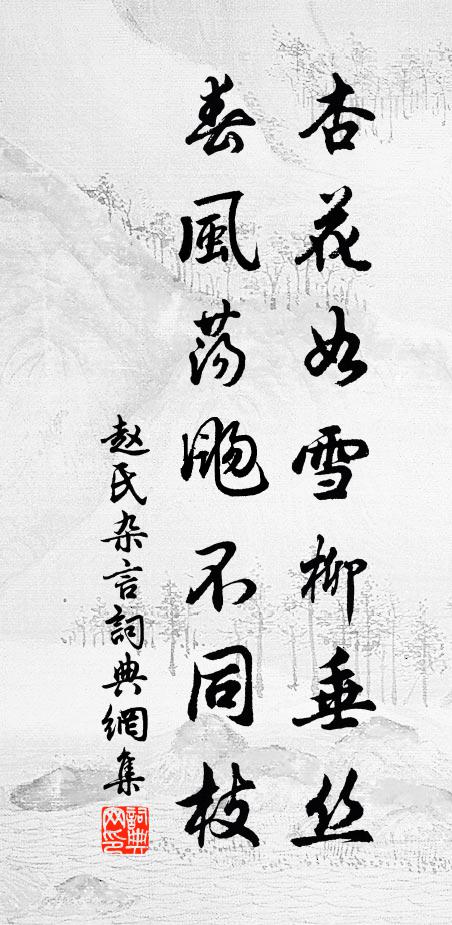 杏花如雪柳垂丝
春風荡飏不同枝
赵氏杂言詞典網集
詞典网印